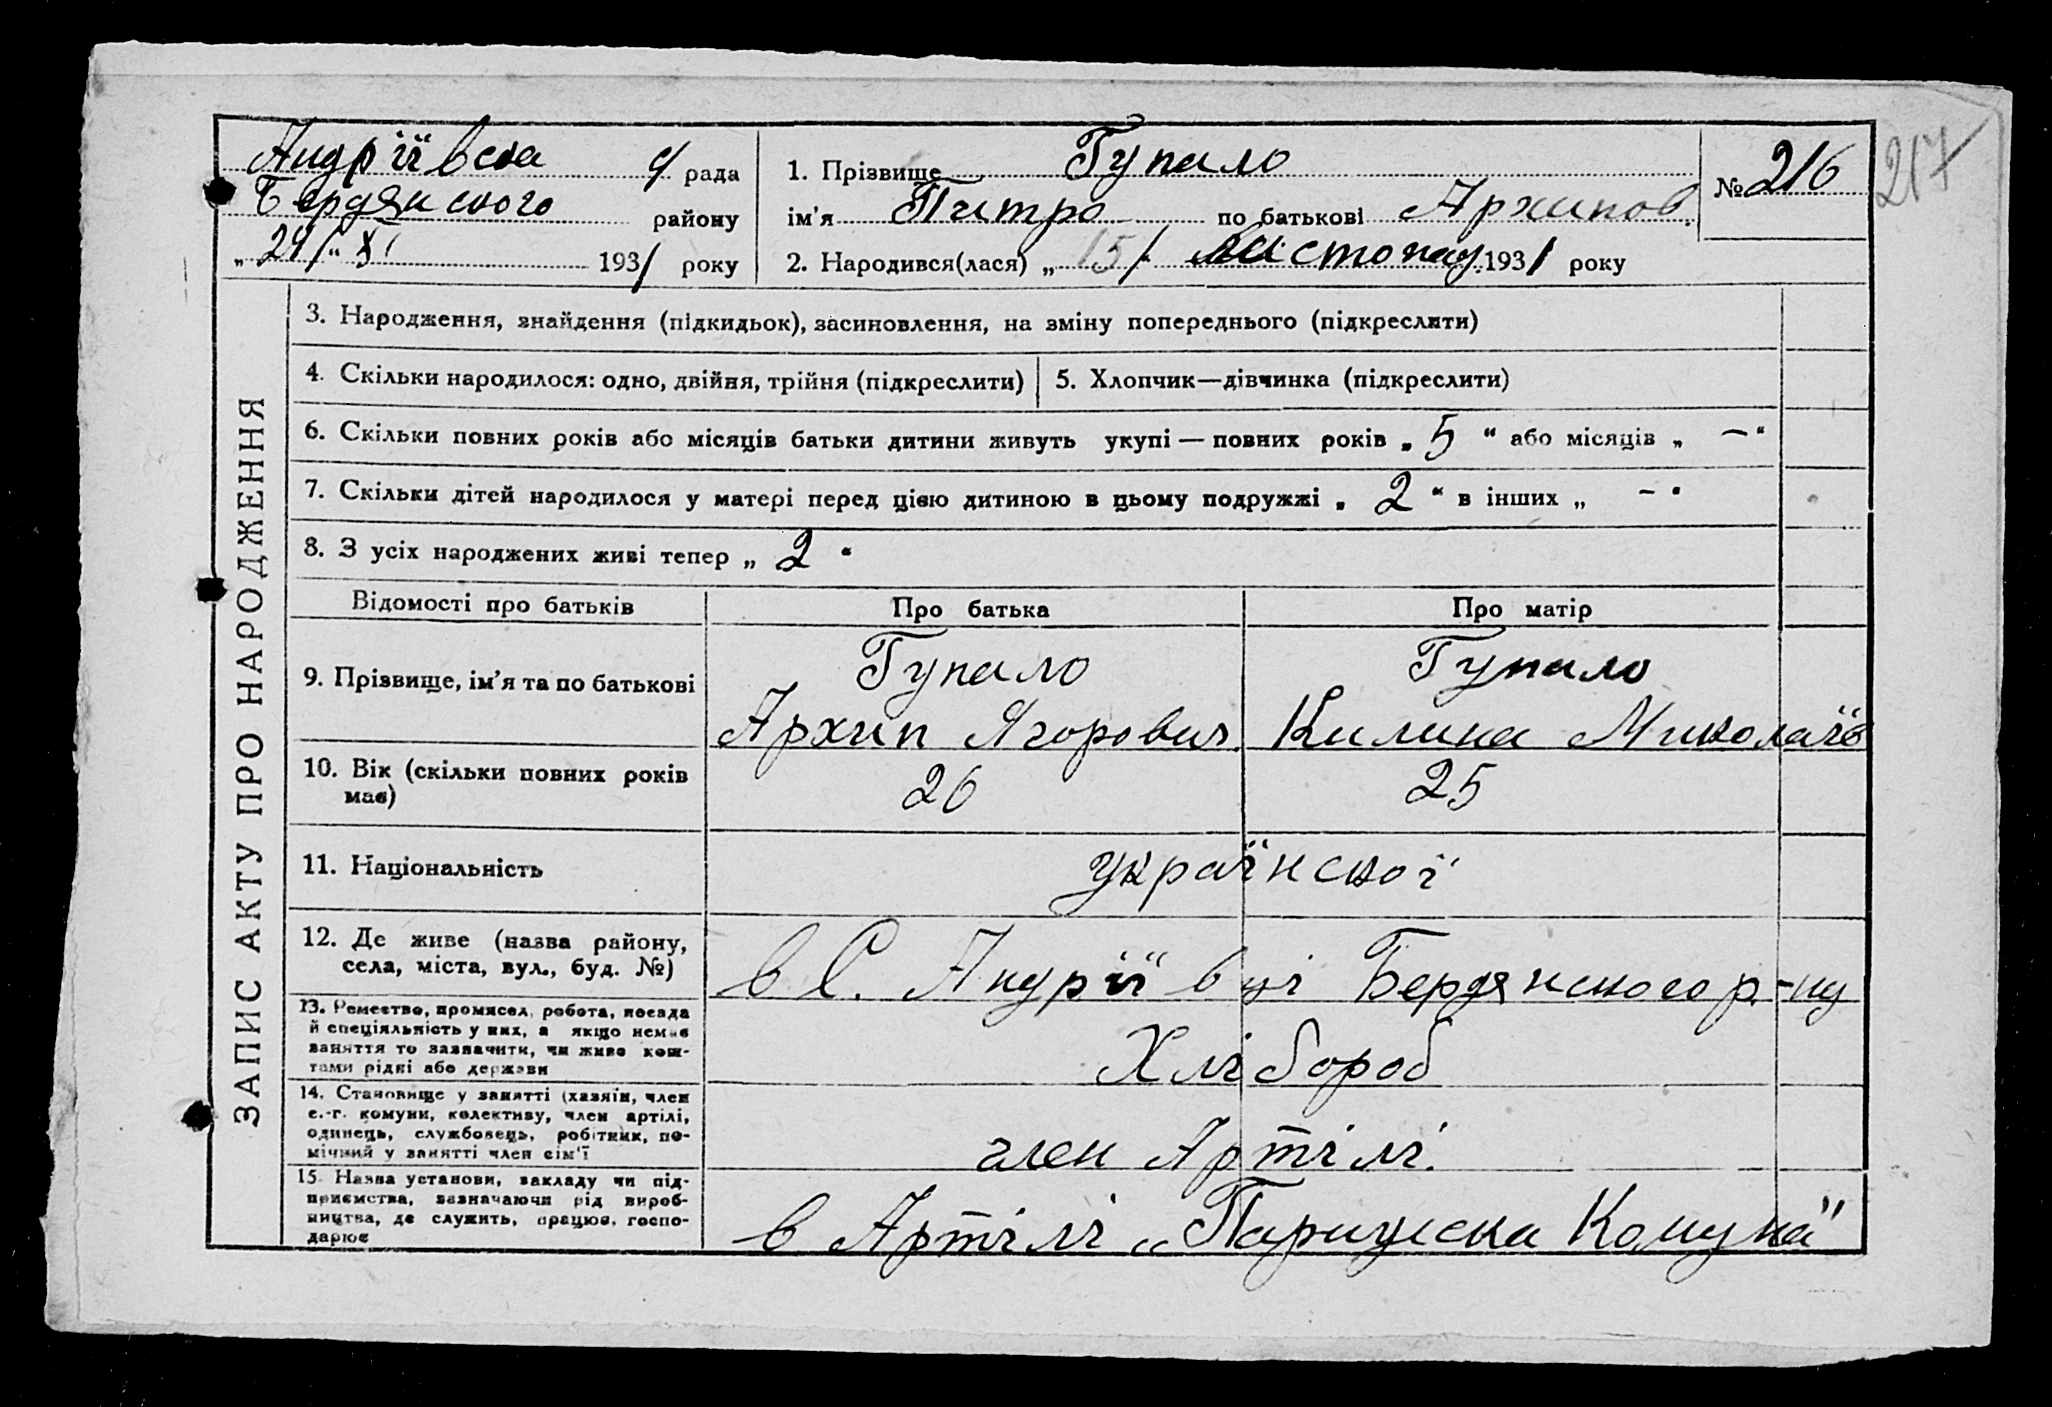 Андріївска с/ рада
Бердянского району
„ 24/ “ XI 1931 року
1. Прізвище Гупало
ім'я Питро по батькові Архипов.
2. Народився(лася) „ 15/ “ листопад 1931 року
№ 216
217
ЗАПИС АКТУ ПРО НАРОДЖЕННЯ
3. Народження, знайдення (підкидьок), засиновлення, на зміну попереднього (підкреслити)
4. Скільки народилося: одно, двійня, трійня (підкреслити)
5. Хлопчик—дівчинка (підкреслити)
6. Скільки повних років або місяців батьки дитини живуть укупі — повних років „ 5 “ або місяців „ — “
7. Скільки дітей народилося у матері перед цією дитиною в цьому подружжі „ 2 “ в інших „ — “
8. З усіх народжених живі тепер „ 2 “
Відомості про батьків
Про батька
Про матір
9. Прізвище, ім'я та по батькові
Гупало
Архип Ягорович
Гупало
Килина Миколаїв
10. Вік (скільки повних років
має)
26
25
11. Національність
українскої
12. Де живе (назва району,
села, міста, вул., буд. №)
в С. Андріївці Бердянского р-ну
13. Ремество, промисел, робота, посада
й спеціяльність у них, а якщо немає
заняття то зазначити, чи живе кош-
тами рідні або держави
Хлібороб
14. Становище у занятті (хазяїн, член
с.-г. комуни, колективу, член артілі,
одинець, службовець, робітник, по-
мічний у занятті член сім'ї
член Артілі.
15. Назва установи, закладу чи під-
приємства, зазначаючи рід вироб-
ництва, де служить, працює, госпо-
дарює
в Артілі „Парижска Комуна"